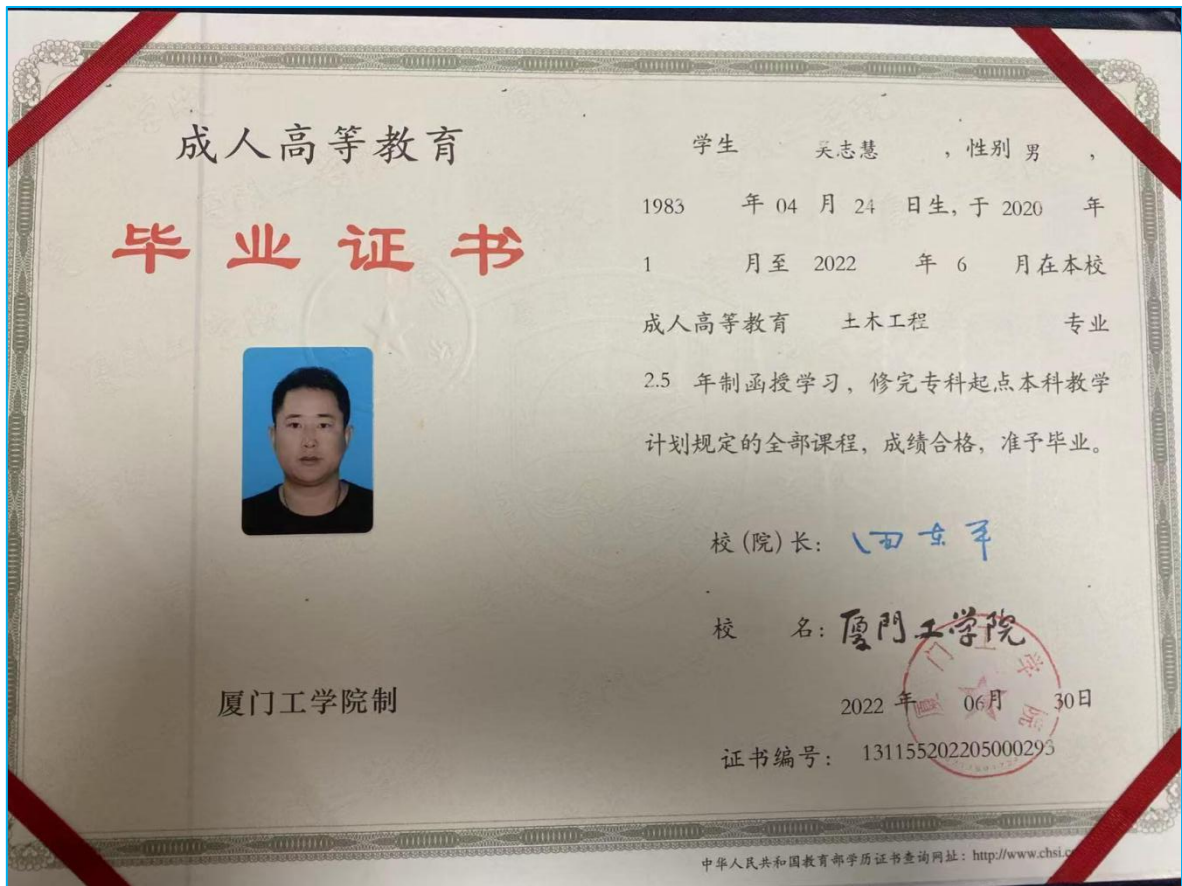 成人高等教育
毕业证书
厦门工学院制
学生 吴志慧 ，性别 男 ，
1983 年 04 月 24 日生，于 2020 年
1 月至 2022 年 6 月在本校
成人高等教育 土木工程 专业
2.5 年制函授学习，修完专科起点本科教学
计划规定的全部课程，成绩合格，准予毕业。
校（院）长：
校 名：厦門工学院
厦门工学院
2022 年 06月 30日
证书编号： 131155202205000293
中华人民共和国教育部学历证书查询网址：http://www.chsi.c